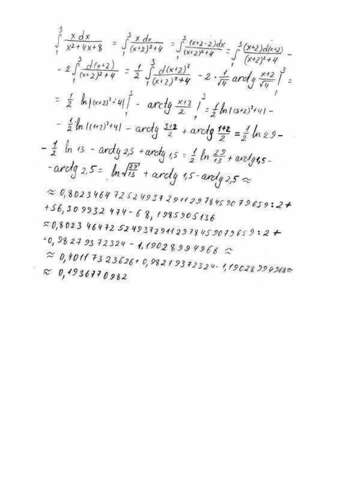 ∫₁³ x dx / (x²+4x+8) = ∫₁³ x dx / ((x+2)²+4) = ∫₁³ (x+2-2)dx / ((x+2)²+4) = ∫₁³ (x+2)d(x+2) / ((x+2)²+4) -
- 2 ∫₁³ d(x+2) / ((x+2)²+4) = 1/2 ∫₁³ d(x+2)² / ((x+2)²+4) - 2 · 1/√4 arctg (x+2)/√4 |₁³ =
= 1/2 ln|(x+2)²+4| |₁³ - arctg (x+2)/2 |₁³ = 1/2 ln|(3+2)²+4| -
- 1/2 ln|(1+2)²+4| - arctg (3+2)/2 + arctg (1+2)/2 = 1/2 ln 29 -
- 1/2 ln 13 - arctg 2,5 + arctg 1,5 = 1/2 ln 29/13 + arctg 1,5 -
- arctg 2,5 = ln √(29/13) + arctg 1,5 - arctg 2,5 ≈
≈ 0,80234647252493729112978459079659 : 2 +
+ 56,309932474 - 68,1985905136
≈ 0,80234647252493729112978459079659 : 2 +
+ 0,98279372324 - 1,19028994968 ≈
≈ 0,40117323626 + 0,98279372324 - 1,19028994968 ≈
≈ 0,1936770982